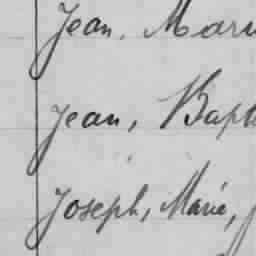 Jean, Mari
Jean, Bapt
Joseph, Marie,